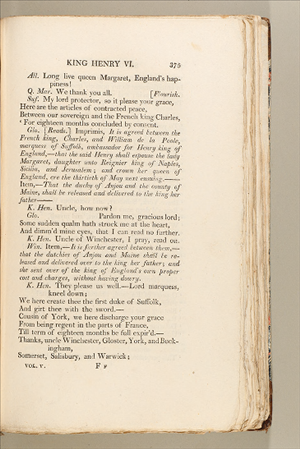 KING HENRY VI. 379
All. Long live queen Margaret, England's hap-
piness!
Q. Mar. We thank you all. [Flourish.
Suf. My lord protector, so it please your grace,
Here are the articles of contracted peace,
Between our sovereign and the French king Charles,
For eighteen months concluded by consent.
Glo. [Reads.] Imprimis, It is agreed between the
French king, Charles, and William de la Poole,
marquess of Suffolk, ambassador for Henry king of
England,—that the said Henry shall espouse the lady
Margaret, daughter unto Reignier king of Naples,
Sicilia, and Jerusalem; and crown her queen of
England, ere the thirtieth of May next ensuing.——
Item,—That the duchy of Anjou and the county of
Maine, shall be released and delivered to the king her
father——
K. Hen. Uncle, how now?
Glo. Pardon me, gracious lord;
Some sudden qualm hath struck me at the heart,
And dimm'd mine eyes, that I can read no further.
K. Hen. Uncle of Winchester, I pray, read on.
Win. Item,—It is further agreed between them,—
that the dutchies of Anjou and Maine shall be re-
leased and delivered over to the king her father; and
she sent over of the king of England's own proper
cost and charges, without having dowry.
K. Hen. They please us well.—Lord marquess,
kneel down;
We here create thee the first duke of Suffolk,
And girt thee with the sword.—
Cousin of York, we here discharge your grace
From being regent in the parts of France,
Till term of eighteen months be full expir'd.—
Thanks, uncle Winchester, Gloster, York, and Buck-
ingham,
Somerset, Salisbury, and Warwick;
VOL. V. F F